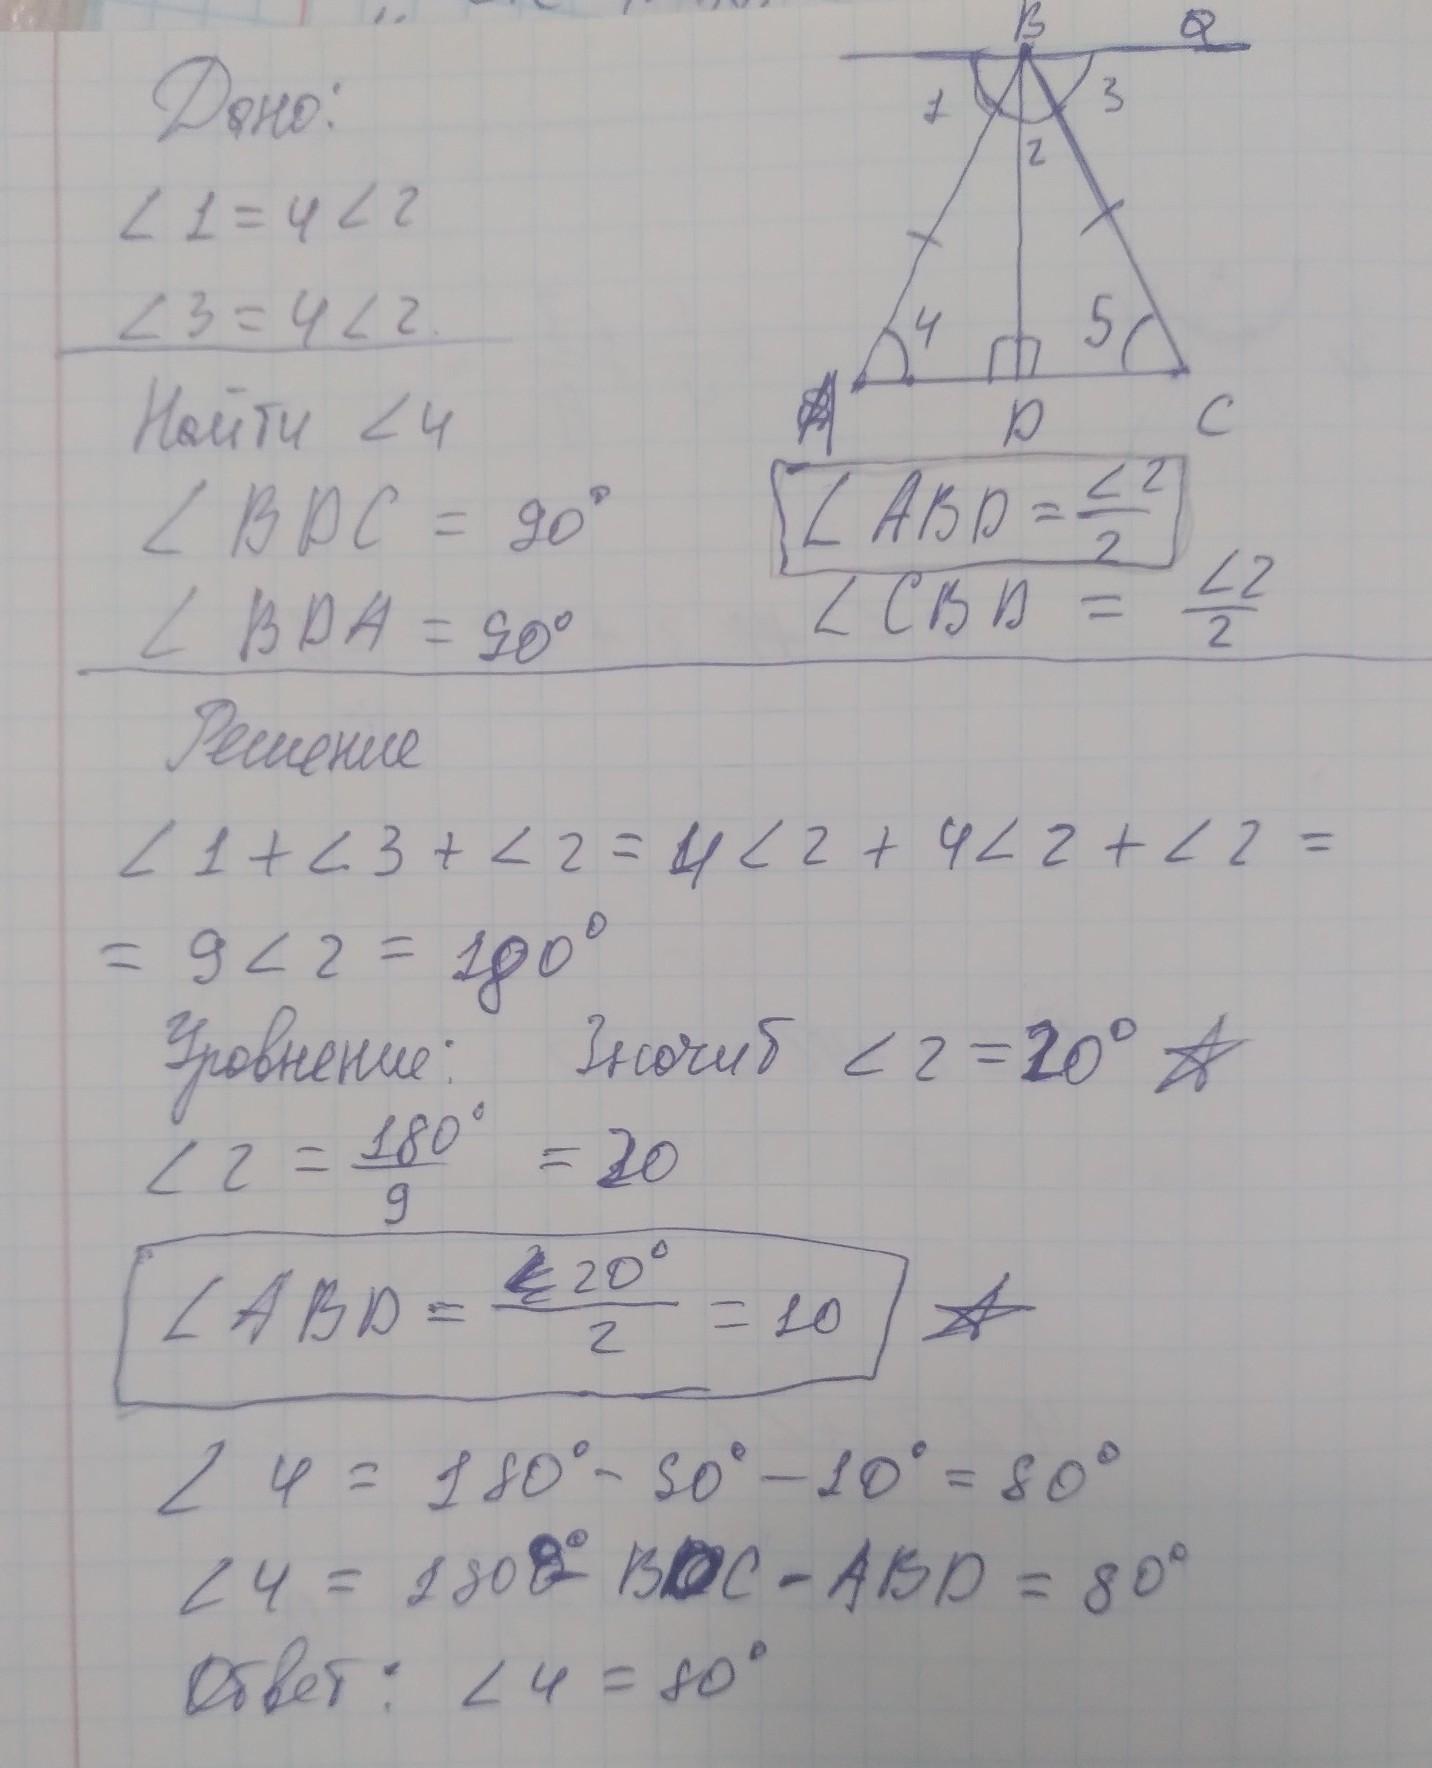 Дано:
∠1=4∠2
∠3=4∠2.
Найти ∠4
∠BDC = 90°
∠BDA = 90°
B Q
1 2 3
4 5
A D C
∠ABD = ∠2/2
∠CBD = ∠2/2
Решение
∠1+∠3+∠2=4∠2+4∠2+∠2=
= 9∠2 = 180°
Уравнение: Значит ∠2=20°
∠2 = 180°/9 = 20
∠ABD = 20°/2 = 10
∠4 = 180° - 90° - 10° = 80°
∠4 = 180° - BDC - ABD = 80°
Ответ: ∠4 = 80°